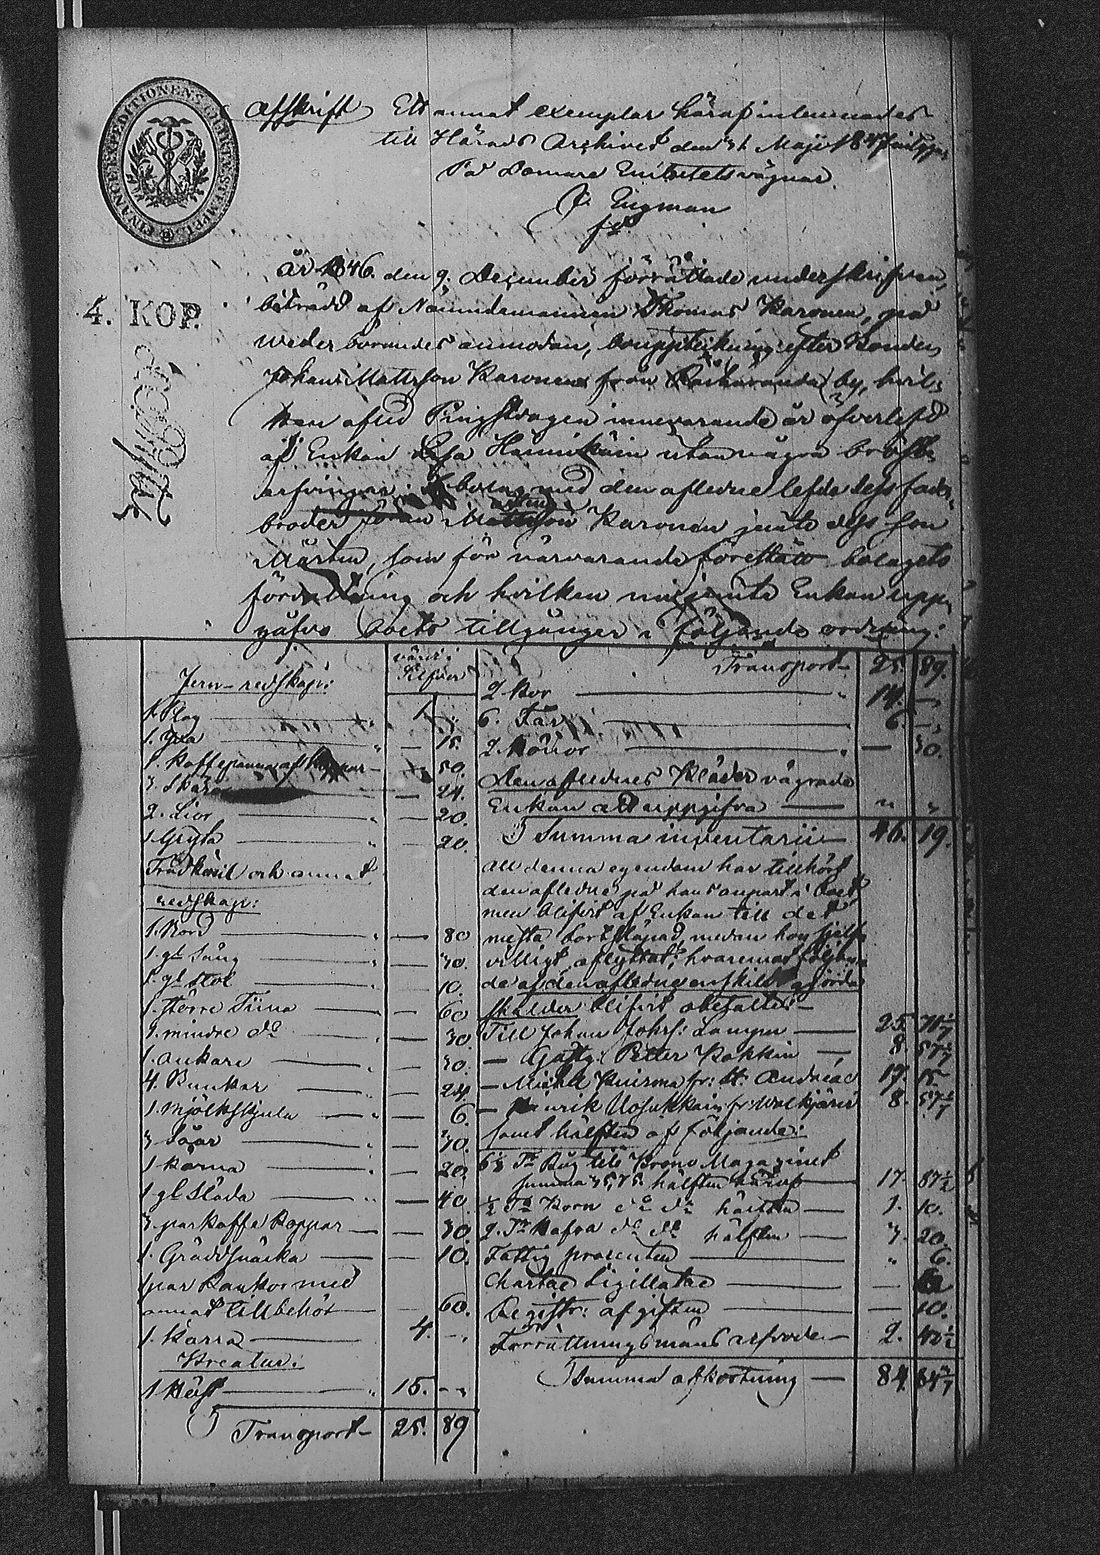 FINANCEEXPEDITIONENS CHARTÆSTEMPEL
4. KOP.
Afskrift Ett annat exemplar häraf inlemnades
till Härads Archivet den 31 Maji 1847
På Domare Embetets vägnar
Engman
År 1846 den 9 December förrättade underskrifven,
biträdd af Nämndemannen Thomas Karonen, på
wederborandes anmodan, bouppteckning efter Bonden
Johan Mattsson Karonen från by, hvil-
ken afled Pingstdagen innevarande år öfverlefd
af Enkan Lisa Hännikäin utan några bröst-
arfvingar. I bolag med den aflidne lefde dess fader-
broder Mattsson Karonen jemte dess son
Mårten, som för närvarande förestått bolagets
förvaltning och hvilken nu jemte Enkan upp-
gåfvo boets tillgångar i följande ordning:
Jern-redskap:
värde i Silfver
1. Plog — 1. "
1. — 15.
1. Kaffepanna af koppar — 50.
3. Skäror — 24.
2. Lior — 20.
1. Gryta — 20.
Trädkäril och annat
redskap:
1. Bord — 80
1. gl. Säng — 30.
1. gl. stol 10.
1. större Tiina — 60
1. mindre do — 30
1. ankare — 30.
4. Bunkar — 24
1. Mjölkskjula — 6.
3 Såar — 30.
1 kärna — 20.
1 gl Släda — 40.
3. par kaffe koppar — 30.
1. Gräddsnäcka — 10.
1 par Bankor med
annat tillbehör — 60.
1. Kärra — 4. "
Kreatur:
1 Häst — 15. "
Transport — 25. 89
Transport — 25. 89.
2. Kor — 14. "
6. Får — 6 "
2. — 30.
Den aflednes Kläder vägrade
Enkan att uppgifva — " "
Summa inventarii — 46. 19.
All denna egendom har tillhört
den aflidne på hans anpart i boet
men blifvit af Enkan till det
mesta bortsläpad, medan hon sjelf-
villigt aflyttat, hvaremot följan-
de af den aflidne enskildt gjorda
skulder blifvit obetalte:
Till Johan Johrs: Lampu — 25. 71 3/7
— Petter Kokkin — 8. 57 1/7
— Michel Kuisma fr: St. Andreæ 17. 15
— Henrik fr Walkjärvi 8. 57 1/7
samt hälften af följande:
6½ Tr Råg till Krono Magazinet
summa 35,75. hälften — 17. 87½
½ Tr Korn do do hälften — 1. 10.
2. Tr Hafra do do hälften — 3. 20.
Fattig procenten — " 6.
Chartæ Sigillatæ —
Registr: afgiften — 10.
Förrättningsmäns arfvode — 2. 40½
Summa afkortning — 84. 84 4/7